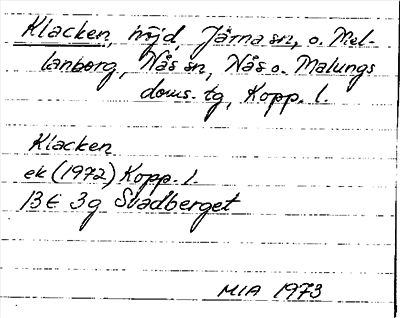 Klacken, höjd, Järna sn, o. Mel-
lanborg, Nås sn, Nås o. Malungs
doms. tg, Kopp. l.
Klacken
ek (1972) Kopp. l.
13E 3g Skadberget
MIA 1973